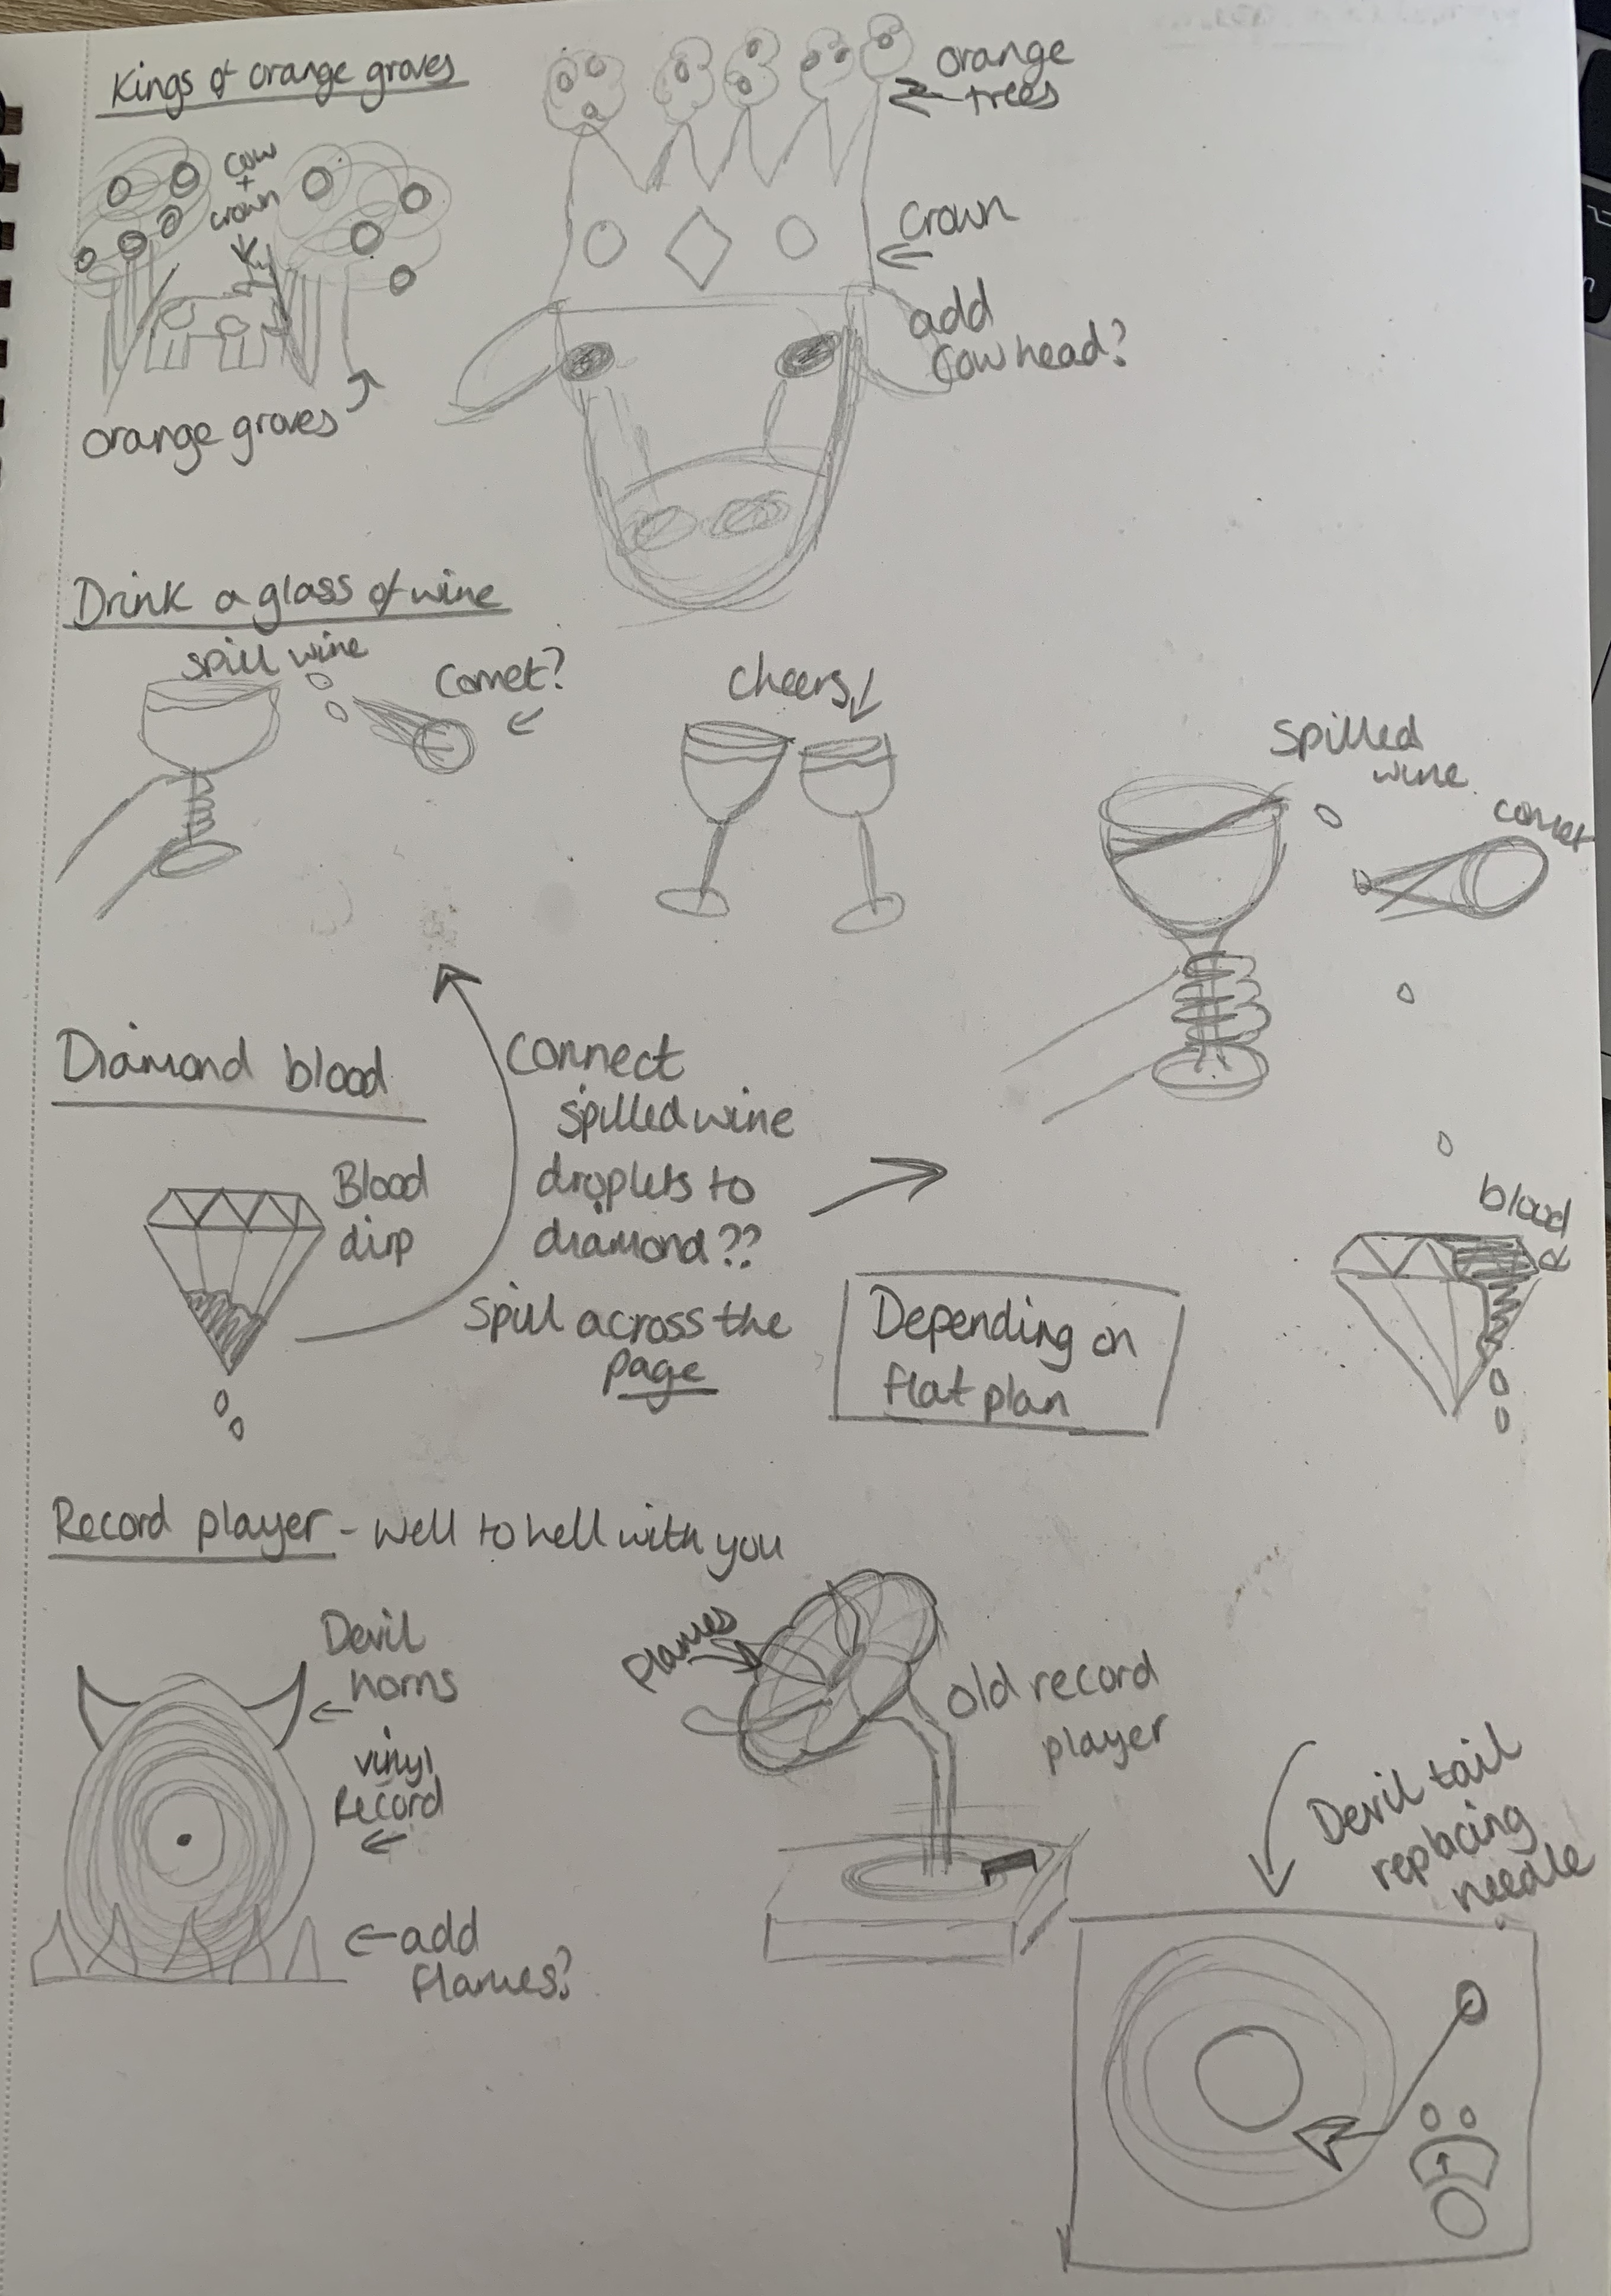 Kings of orange groves
orange
trees
cow
+
crown
Crown
add
cow head?
orange groves
Drink a glass of wine
spill wine
comet?
cheers
spilled
wine
comet
Diamond blood
connect
spilled wine
droplets to
diamond??
Spill across the
page
Blood
dirp
blood
Depending on
flat plan
Record player - Well to hell with you
Devil
horns
vinyl
Record
add
flames?
flames
old record
player
Devil tail
replacing
needle